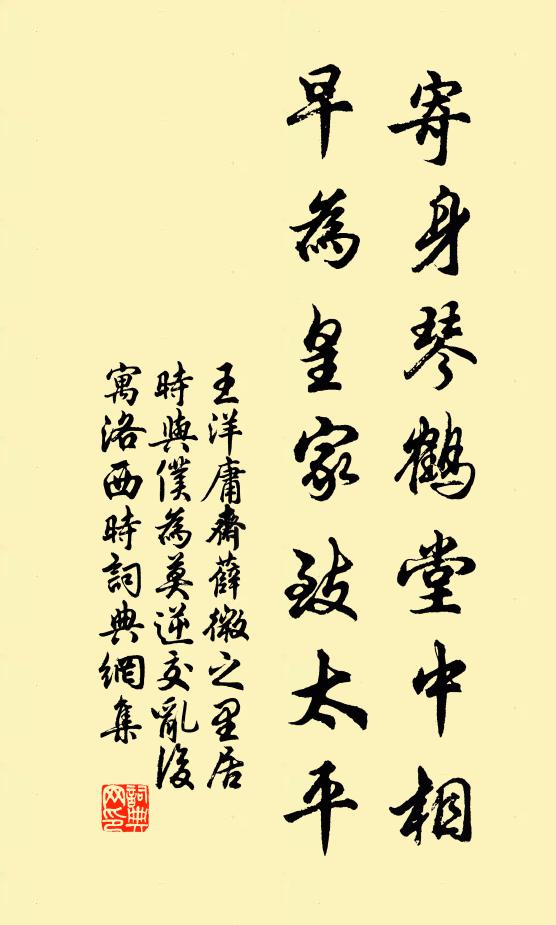 寄身琴鶴堂中相
早為皇家致太平
王洋庸齋薛微之里居
時與僕為莫逆交亂後
寓洛西時詞典網集
詞典
网印